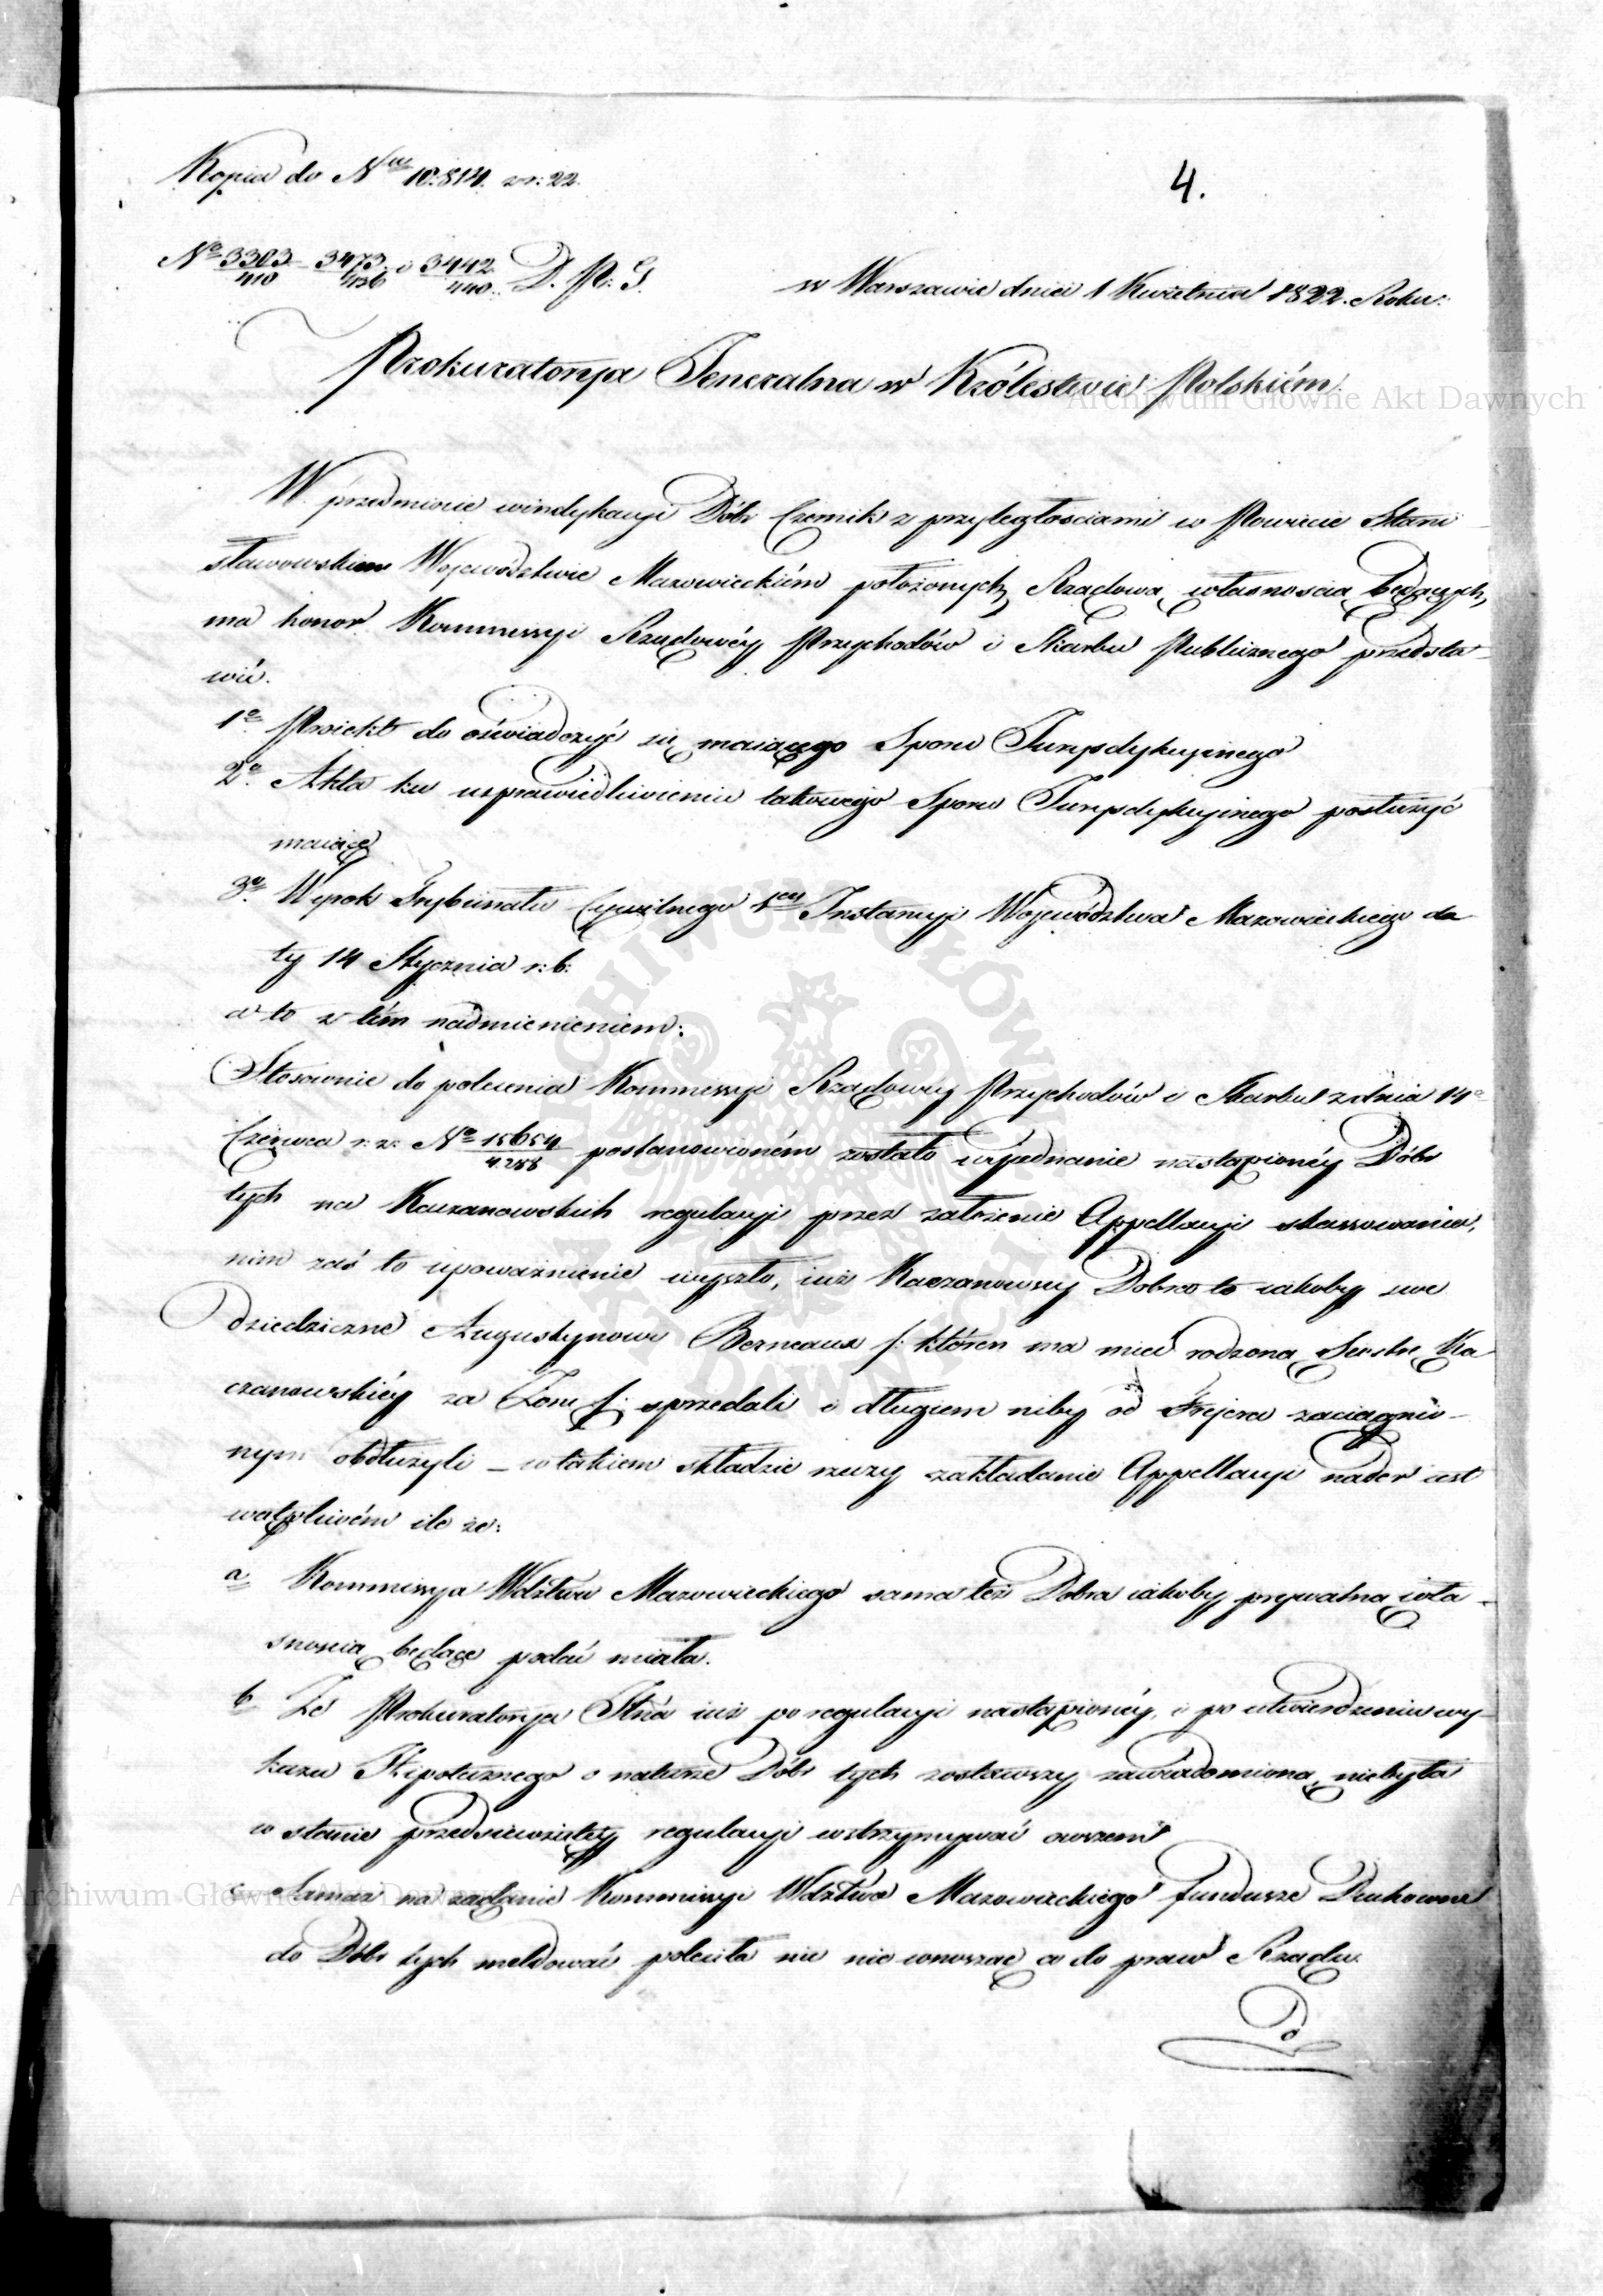 Kopia do Nru 10:814. z r: 22.
4.
No 3303/410 3473/436 i 3442/440. D. P. G.
w Warszawie dnia 1 Kwietnia 1822. Roku.
Prokuratorya Jeneralna w Królestwie Polskiém.
Archiwum Główne Akt Dawnych
W przedmiocie windykacyi Dóbr Czernik z przyległosciami w Powiecie Stani
sławowskiem Województwie Mazowieckiém położonych, Rządową własnoscią będących,
ma honor Kommissyi Rządowéy Przychodów i Skarbu Publicznego przedsta-
wić.
1o Proiekt do oświadczyć się maiącego Sporu Jurysdykcyinego
2o Akta ku usprawiedliwieniu takowego Sporu Jurysdykcyinego posłużyć
maiące
3o Wyrok Trybunału Cywilnego 1ey Instancyi Województwa Mazowieckiego da
ty 14 Stycznia r: b:
a to z tém nadmienieniem:
Stosownie do polecenia Kommissyi Rządowéy Przychodów i Skarbu z dnia 14o
Czerwca r: z: No 15654/4258 postanowioném zostało wyjednanie nastąpionéy Dóbr
tych na Kaczanowskich regulacyi przez założenie Appellacyi skassowania,
nim zaś to upoważnienie wyszło, iuż Kaczanowscy Dobra to iakoby swe
Dziedziczne Augustynowi Berneaux /: któren ma mieć rodzoną Siostrę Ka
czanowskiéy za Żonę /: sprzedali i długiem niby od Frejera zaciągnio-
nym obdłużyli – w takiem składzie rzeczy zakładanie Appellacyi nader iest
wątpliwém ile że:
a Kommissya Wdztwa Mazowieckiego sama też Dobra iakoby prywatną wła-
snoscią będące podać miała.
b Że Prokuratorya Jlna iuż po regulacyi nastąpionéy, i po utwierdzeniu wy-
kazu Hipotecznego o naturze Dóbr tych zostawszy zawiadomioną, niebyła
w stanie przedsiewziętéy regulacyi wstrzymywać owszem
c Sama na żądanie Kommissyi Wdztwa Mazowieckiego fundusze Duchowne
Archiwum Główne Akt Dawnych
do Dóbr tych meldować poleciła nic nie wnosząc co do praw Rządu.